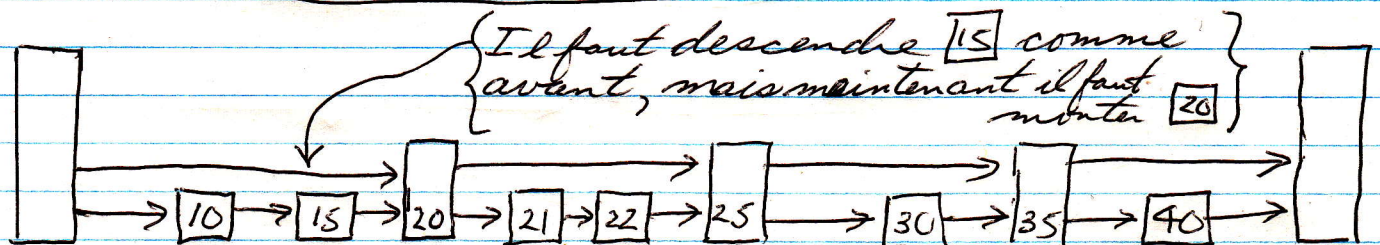 Il faut descendre 15 comme
avant, mais maintenant il faut
monter 20
10 15 20 21 22 25 30 35 40